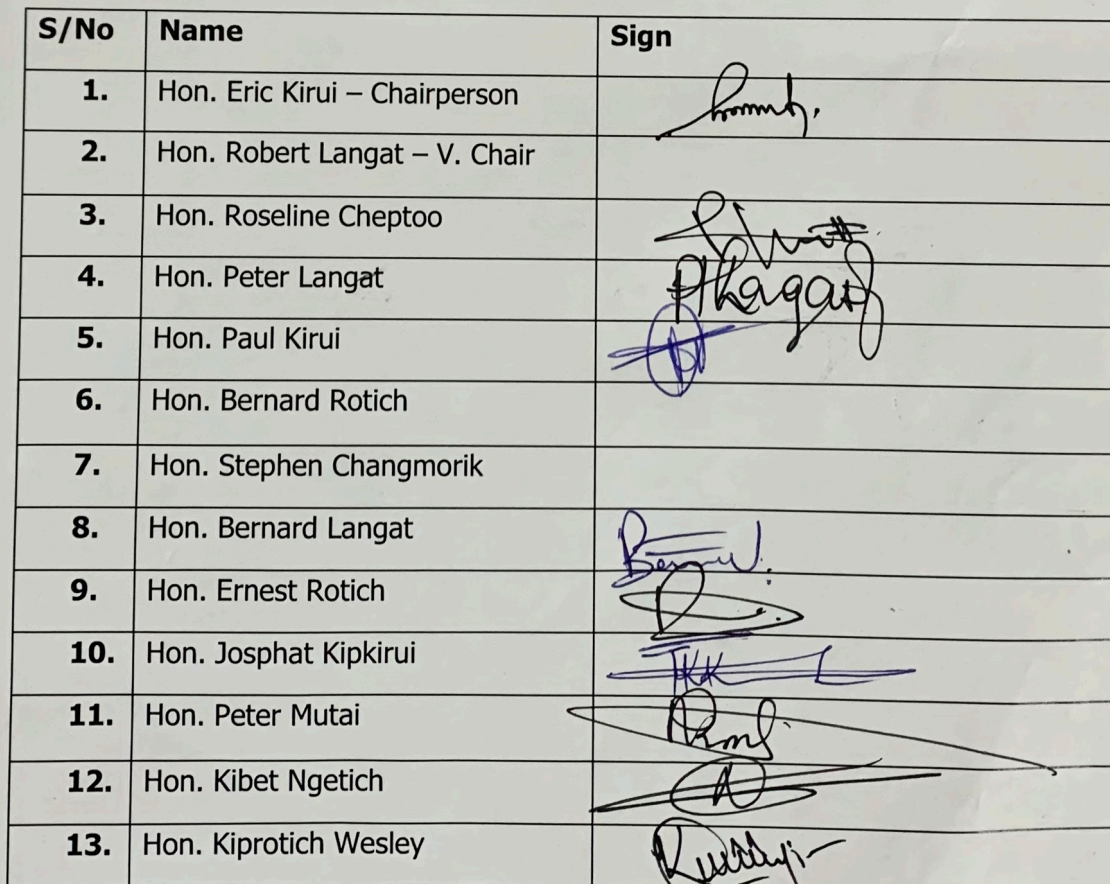 S/No Name Sign
1. Hon. Eric Kirui – Chairperson
2. Hon. Robert Langat – V. Chair
3. Hon. Roseline Cheptoo
4. Hon. Peter Langat
5. Hon. Paul Kirui
6. Hon. Bernard Rotich
7. Hon. Stephen Changmorik
8. Hon. Bernard Langat
9. Hon. Ernest Rotich
10. Hon. Josphat Kipkirui
11. Hon. Peter Mutai
12. Hon. Kibet Ngetich
13. Hon. Kiprotich Wesley